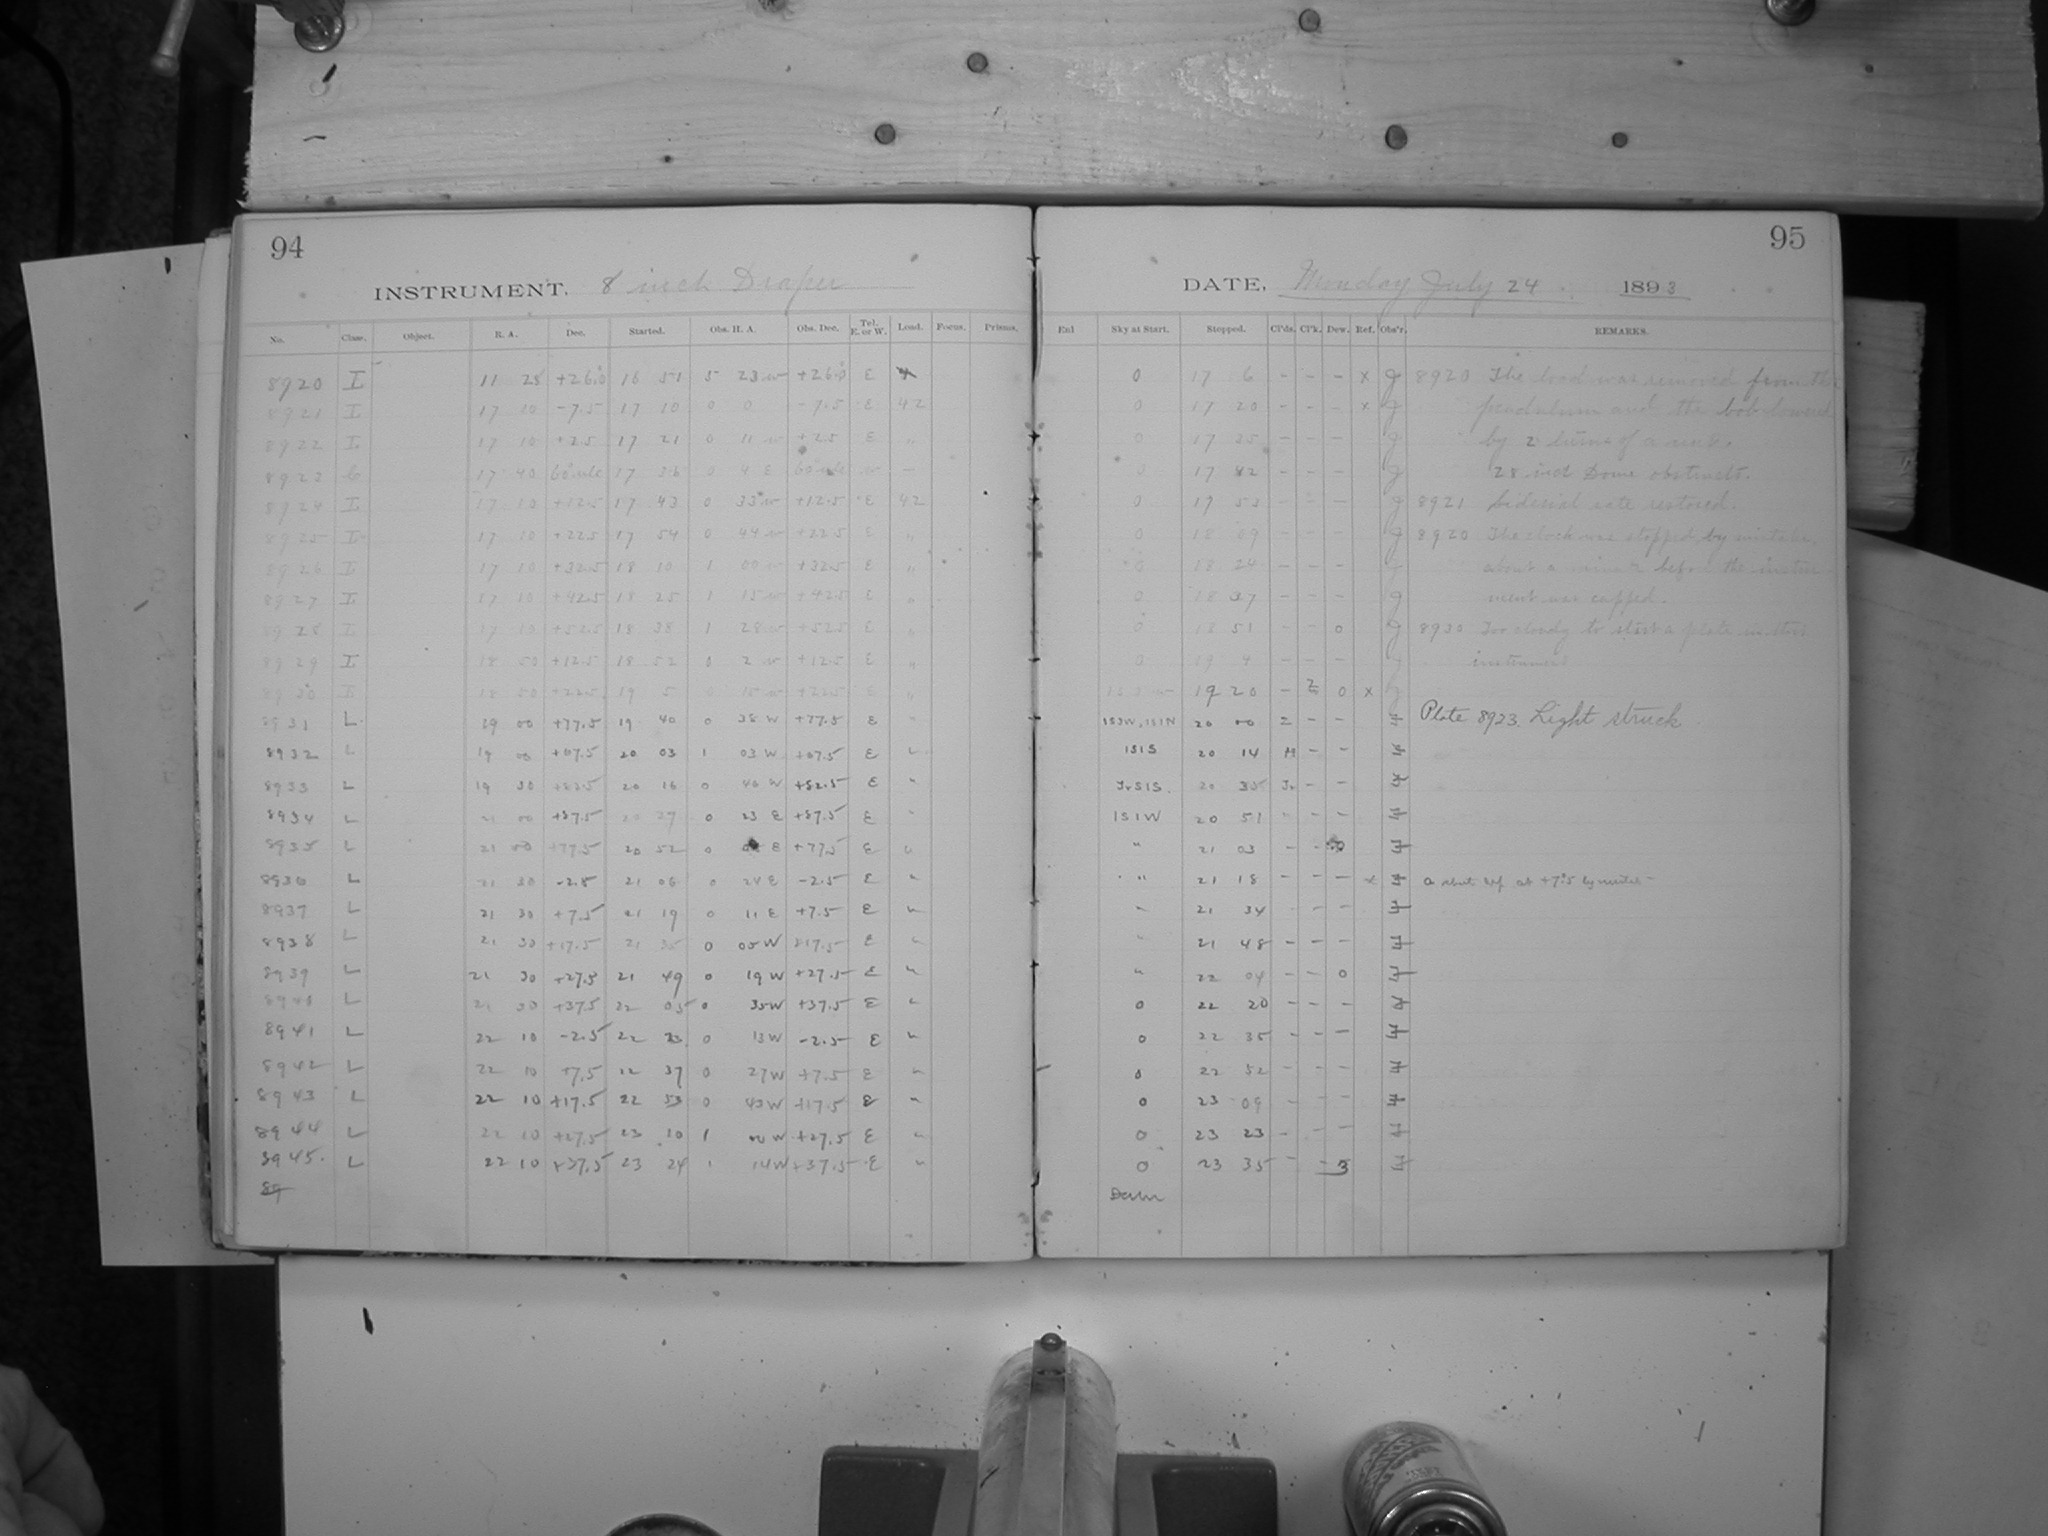 94
INSTRUMENT. 8 inch Draper
No. Class. Object. R. A. Dec. Started. Obs. H. A. Obs. Dec. Tel. E. or W. Load. Focus. Prisms.
8920 I 11 25 +26.0 16 51 5 23 w +26.0 E
8921 I 17 10 -7.5 17 10 0 0 -7.5 E 42
8922 I 17 10 +2.5 17 21 0 11 w +2.5 E "
8923 17 40 17 36 0 4 E w -
8924 I 17 10 +12.5 17 43 0 33 w +12.5 E 42
8925 I 17 10 +22.5 17 54 0 44 w +22.5 E "
8926 I 17 10 +32.5 18 10 1 00 w +32.5 E "
8927 I 17 10 +42.5 18 25 1 15 w +42.5 E "
8928 I 17 10 +52.5 18 38 1 28 w +52.5 E "
8929 I 18 50 +12.5 18 52 0 2 w +12.5 E "
8930 I 18 50 +22.5 19 5 0 15 w +22.5 E "
8931 L 19 00 +77.5 19 40 0 38 W +77.5 E "
8932 L 19 00 +67.5 20 03 1 03 W +67.5 E "
8933 L 19 30 +82.5 20 16 0 46 W +82.5 E "
8934 L 21 00 +87.5 20 37 0 23 E +87.5 E "
8935 L 21 00 +77.5 20 52 0 E +77.5 E "
8936 L 21 30 -2.5 21 06 0 24 E -2.5 E "
8937 L 21 30 +7.5 21 19 0 11 E +7.5 E "
8938 L 21 30 +17.5 21 35 0 05 W +17.5 E "
8939 L 21 30 +27.5 21 49 0 19 W +27.5 E "
8940 L 21 30 +37.5 22 05 0 35 W +37.5 E "
8941 L 22 10 -2.5 22 23 0 13 W -2.5 E "
8942 L 22 10 +7.5 22 37 0 27 W +7.5 E "
8943 L 22 10 +17.5 22 53 0 43 W +17.5 E "
8944 L 22 10 +27.5 23 10 1 00 W +27.5 E "
8945. L 22 10 +37.5 23 24 1 14 W +37.5 E "
89
95
DATE, Monday July 24 1893
Enl Sky at Start. Stopped. Cl'ds. Cl'k. Dew. Ref. Obs'r. REMARKS.
0 17 6 - - - x g 8920 The load was removed from the
0 17 20 - - - x g pendulum and the bob lowered
0 17 35 - - - g by 2 turns of a
0 17 42 - - - g 28 inch Dome obstructs.
0 17 53 - - - g 8921 Siderial rate restored.
0 18 09 - - - g 8920 The clock was stopped by mistake
0 18 24 - - - g about a before the instru
0 18 37 - - - g ment was capped.
0 18 51 - - 0 g 8930 Too cloudy to start a plate
0 19 4 - - - g instrument
19 20 - 2 0 x g
1S3W, 1S1N 20 00 2 - - Plate 8923. Light struck
1S1S 20 14 - -
1S1S. 20 35 - -
1S1W 20 51 - - -
" 21 03 - -
" 21 18 - - - x a at +7.5 by
" 21 34 - - -
" 21 48 - - -
" 22 04 - - 0
0 22 20 - - -
0 22 35 - - -
0 22 52 - - -
0 23 09 - - -
0 23 23 - - -
0 23 35 - - 3
Dawn